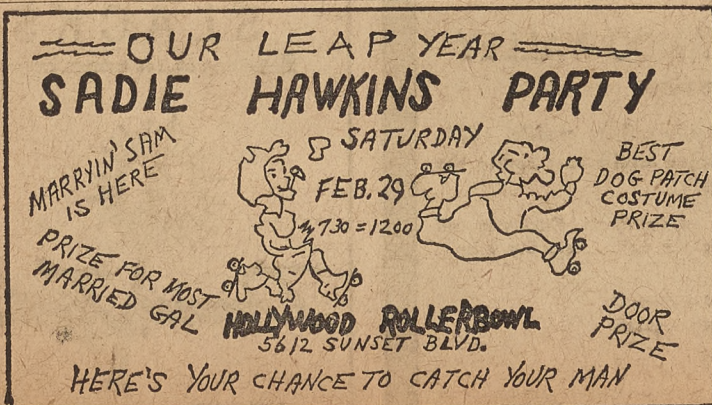 OUR LEAP YEAR
SADIE HAWKINS PARTY
MARRYIN' SAM
IS HERE
SATURDAY
FEB. 29
730=1200
BEST
DOG PATCH
COSTUME
PRIZE
PRIZE FOR MOST
MARRIED GAL
HOLLYWOOD ROLLERBOWL
5612 SUNSET BLVD.
DOOR
PRIZE
HERE'S YOUR CHANCE TO CATCH YOUR MAN